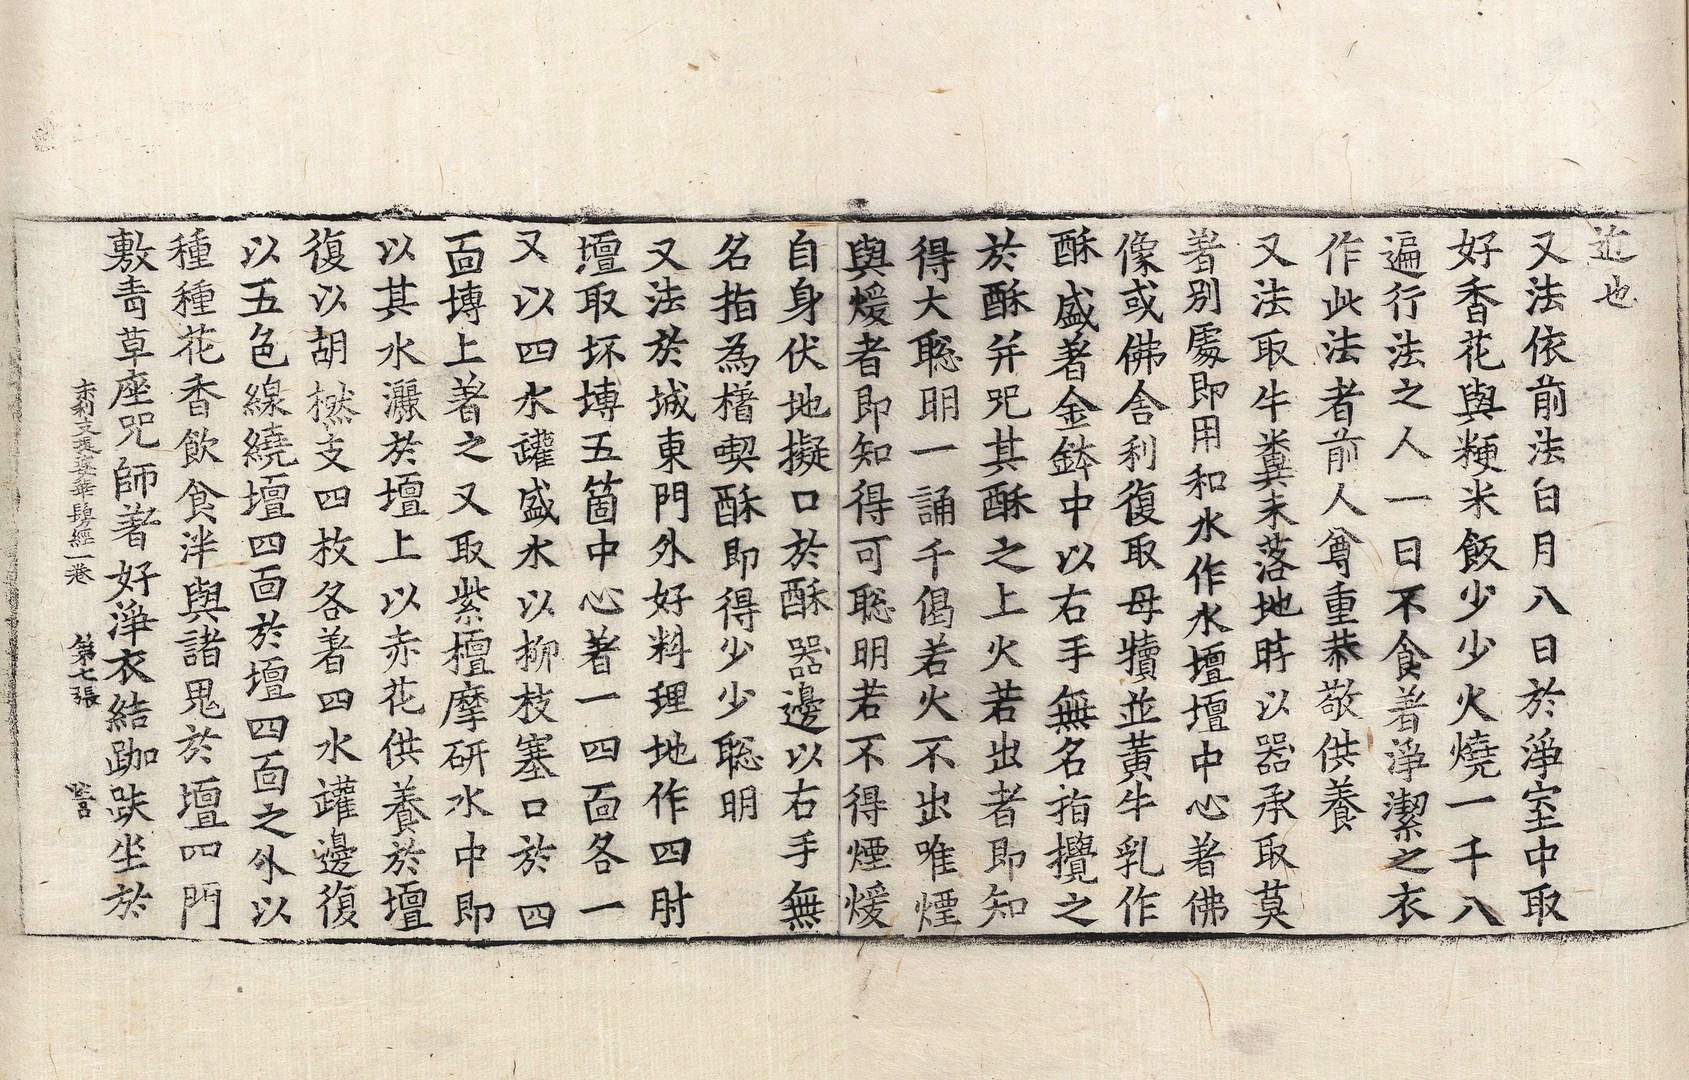 近也
又法依前法白月八日於淨室中取
好香花與粳米飯少少火燒一千八
遍行法之人一日不食著淨潔之衣
作此法者前人尊重恭敬供養
又法取牛糞未落地時以器承取莫
著別處即用和水作水壇壇中心著佛
像或佛舍利復取母犢並黃牛乳作
酥盛著金鉢中以右手無名指攪之
於酥并咒其酥之上火若出者即知
得大聡明一誦千偈若火不出唯煙
與煖者即知得可聡明若不得煙煖
自身伏地擬口於酥器邊以右手無
名指為櫡喫酥即得少少聡明
又法於城東門外好料理地作四肘
壇取坏塼五箇中心著一四面各一
又以四水罐盛水以柳枝塞口於四
面塼上著之又取紫檀摩研水中即
以其水灑於壇上以赤花供養於壇
復以胡橪支四枚各著四水罐邊復
以五色線繞壇四面於壇四面之外以
種種花香飲食泮與諸鬼於壇四門
敷青草座咒師著好淨衣結跏趺坐於
末利支提婆華鬘經一卷 第七張